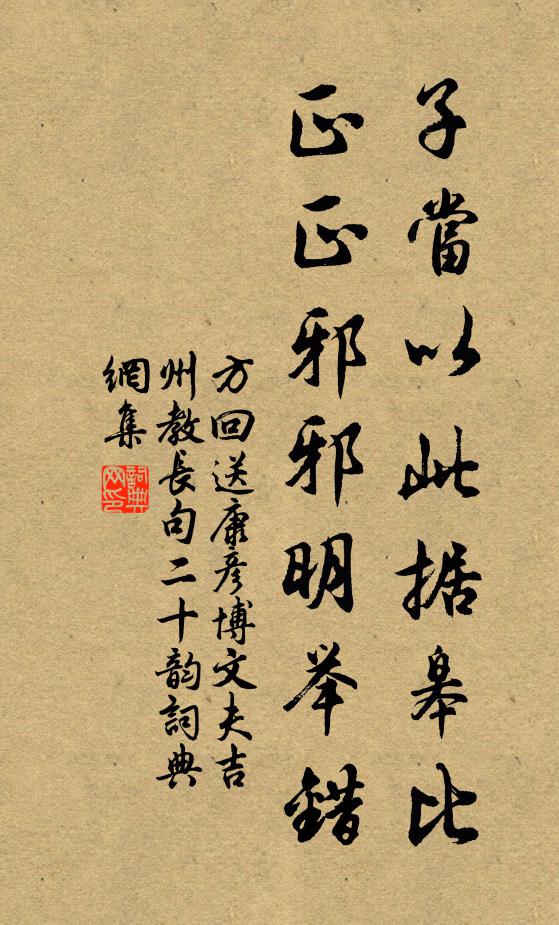 子當以此据皋比
正正邪邪明举錯
方回送康彦博文夫吉
州教長句二十韵詞典
網集
詞典
网印